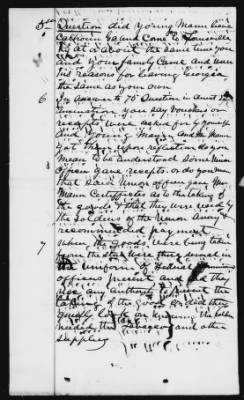 5th Question did young Mann
Calhoun Ga and Come to Louisville
Ky at or about the same time you
and your family Came and were
his reasons for leaving Georgia
the same as your own
6 In answer to 75 Question in
you say vouchers or
receipts were asked for by yourself
and young Mann and Mr Mann
got them upon reflection do you
mean to be understood some Union
officer gave receipts or do you mean
that said Union officer gave Mr
Mann Certificates as to the taking of
the goods & that they were received by
the Soldiers of the Union Army &
recommended payment
7 When the goods were being taken
from the store were they dressed in
the uniform of Federal
officers present and did they
use any authority to prevent the
taking of the goods or did they
quietly look on knowing the soldiers
needed the Tobacco and other
Supplies